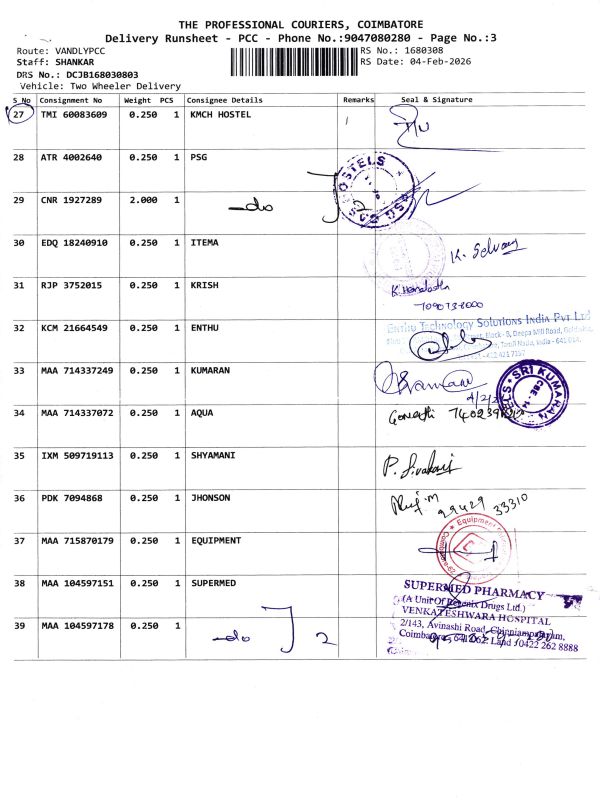 THE PROFESSIONAL COURIERS, COIMBATORE
Delivery Runsheet - PCC - Phone No.:9047080280 - Page No.:3
Route: VANDLYPCC RS No.: 1680308
Staff: SHANKAR RS Date: 04-Feb-2026
DRS No.: DCJB168030803
Vehicle: Two Wheeler Delivery
S No Consignment No Weight PCS Consignee Details Remarks Seal & Signature
27 TMI 60083609 0.250 1 KMCH HOSTEL
28 ATR 4002640 0.250 1 PSG
29 CNR 1927289 2.000 1 -do 2
30 EDQ 18240910 0.250 1 ITEMA K. Selvaraj
31 RJP 3752015 0.250 1 KRISH
32 KCM 21664549 0.250 1 ENTHU Enthu Technology Solutions India Pvt Ltd
33 MAA 714337249 0.250 1 KUMARAN SRI KUMARAN
34 MAA 714337072 0.250 1 AQUA
35 IXM 509719113 0.250 1 SHYAMANI
36 PDK 7094868 0.250 1 JHONSON 29429 33310
37 MAA 715870179 0.250 1 EQUIPMENT Equipment
38 MAA 104597151 0.250 1 SUPERMED SUPERMED PHARMACY
(A Unit Of Regenix Drugs Ltd.)
VENKATESHWARA HOSPITAL
39 MAA 104597178 0.250 1 -do 2
2/143, Avinashi Road, Chinniampalayam,
Coimbatore, 641 062. Land : 0422 262 8888